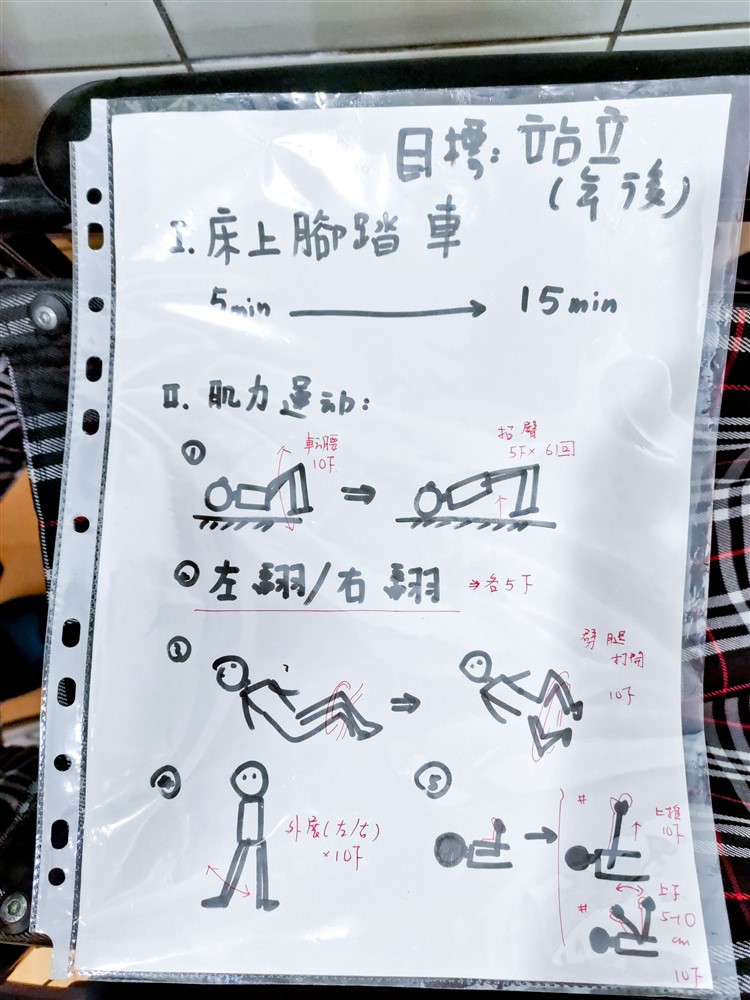 目標:站立
(年後)
I. 床上腳踏車
5min → 15min
II. 肌力運动:
①
転腰
10下
⇒
抬臀
5下×6回
② 左翻/右翻 ⇒各5下
③
⇒
劈腿
打開
10下
④
外展(左/右)
×10下
⑤
→
#
上推
10下
#
上下
5-10
cm
10下